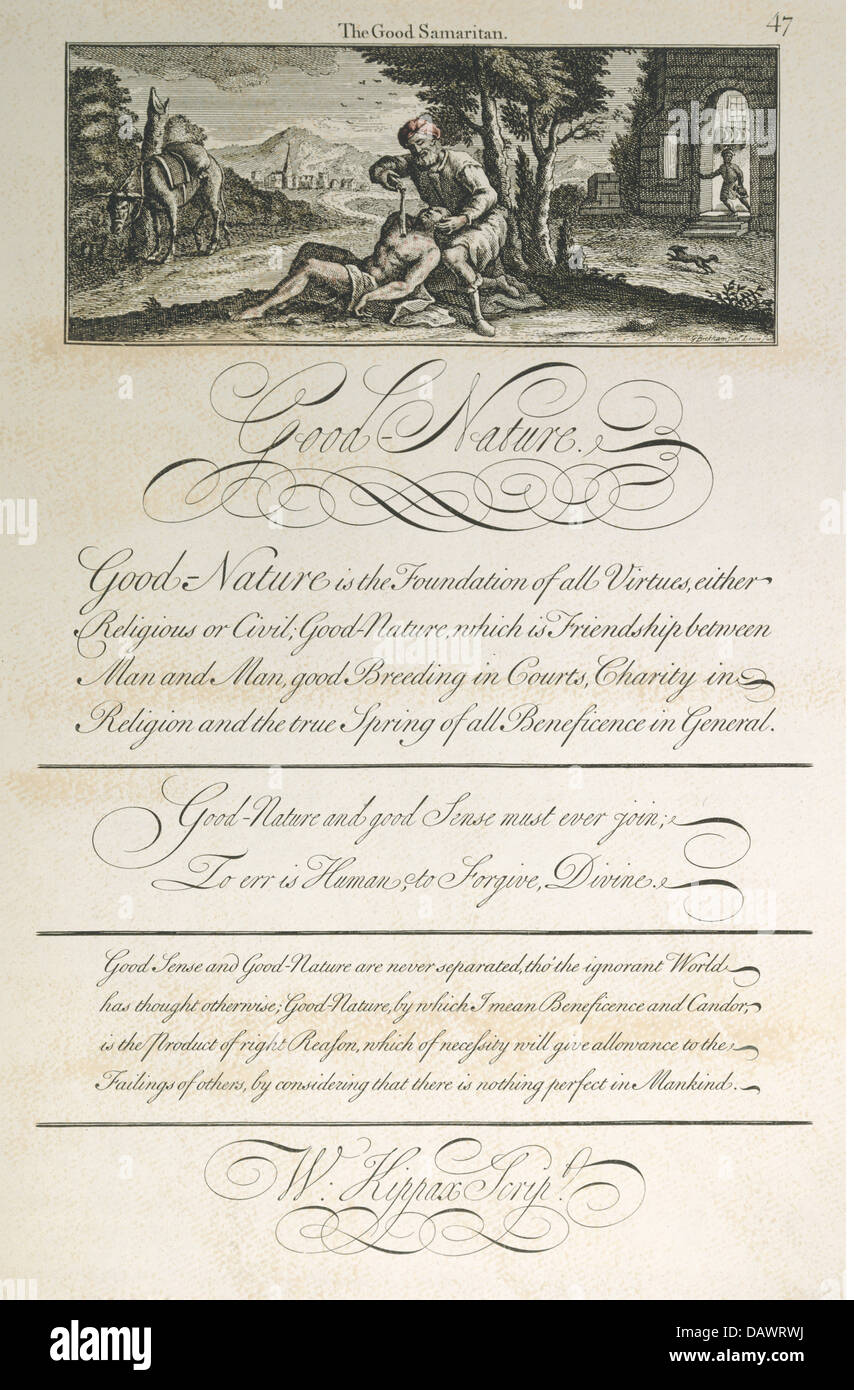 The Good Samaritan.
47
Good-Nature.
Good-Nature is the Foundation of all Virtues, either
Religious or Civil; Good-Nature, which is Friendship between
Man and Man, good Breeding in Courts, Charity in
Religion and the true Spring of all Beneficence in General.
Good-Nature and good Sense must ever join;
To err is Human, to Forgive, Divine.
Good Sense and Good-Nature are never separated, tho' the ignorant World
has thought otherwise; Good-Nature, by which I mean Beneficence and Candor,
is the Product of right Reaſon, which of neceſsity will give allowance to the
Failings of others, by considering that there is nothing perfect in Mankind.
W. Kippax Scrip.t
alamy
Image ID: DAWRWJ
www.alamy.com